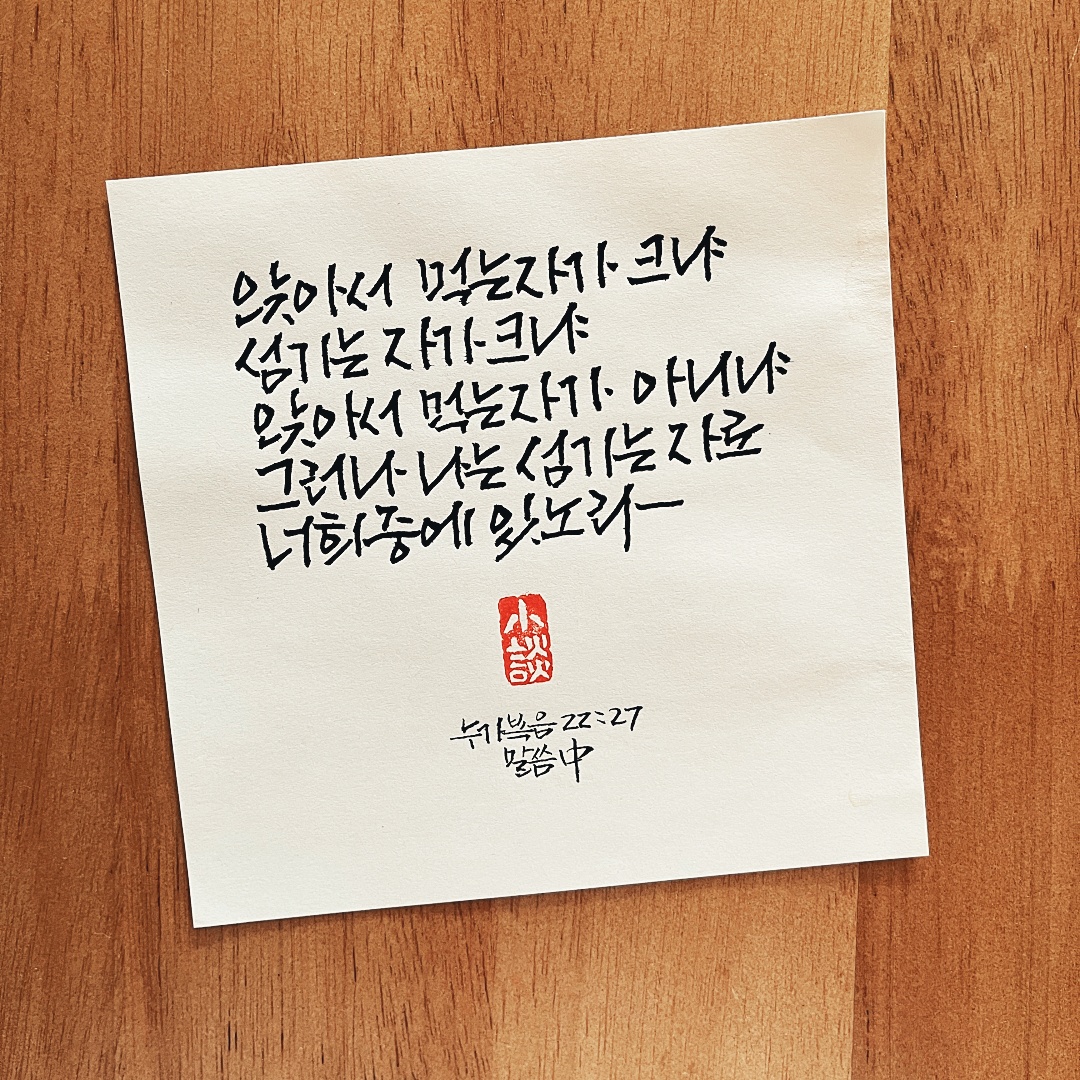 앉아서 먹는 자가 크냐
섬기는 자가 크냐
앉아서 먹는 자가 아니냐
그러나 나는 섬기는 자로
너희 중에 있노라
小談
누가복음 22:27
말씀 中